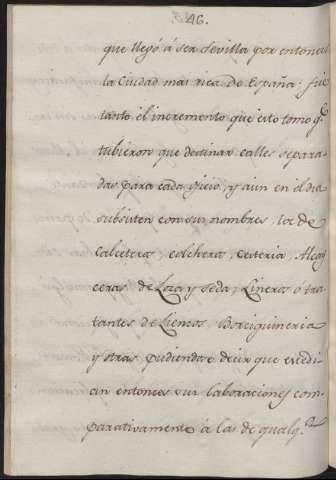 46.
que llegó á ser Sevilla por entonces
la Ciudad mas rica de España: fue
tanto el incremento que esto tomo q.e
tubieron que destinar calles separa-
das para cada gicio, y aun en el dia
subsisten con sus nombres, la de
Calceteros, colcheros, cesteria, Alcay
ceros de Loza y seda, Lineros o tra-
tantes de Lienzos, Borciguineria
y otras pudiendose decir que exedi-
an entonces sus laboraciones com-
parativamente á las de qualq.r